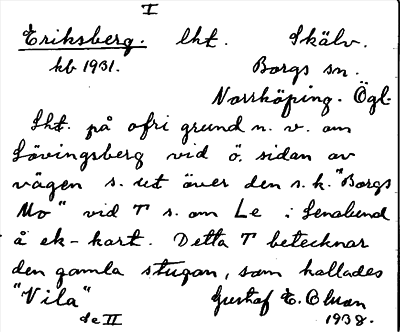 I
Eriksberg. lht. Skälv.
kb 1931. Borgs sn.
Norrköping. Ögl.
Lht. på ofri grund n. v. om
Lövingsberg vid ö. sidan av
vägen s. ut över den s. k. "Borgs
Mo" vid T s. om Le i Lenabund
å ek-kart. Detta T betecknar
den gamla stugan, som kallades
"Vila" Gustaf E. Olsson
se II 1938.